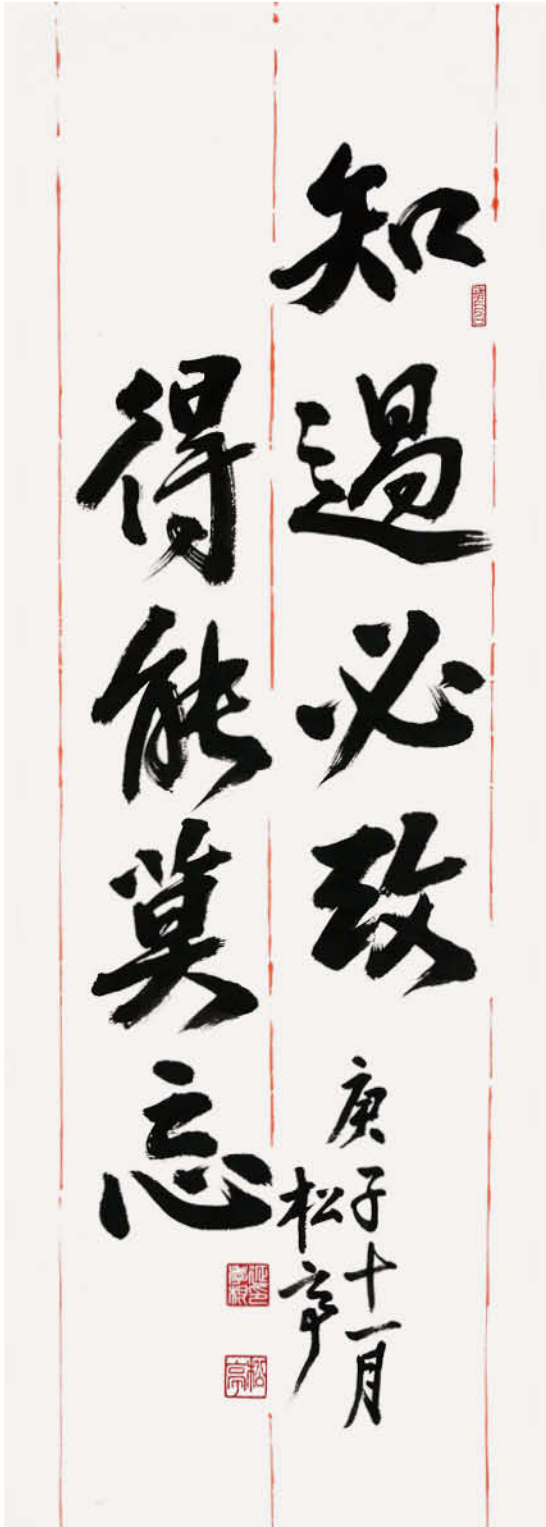 知過必改
得能莫忘
庚子十一月
松亭
松亭